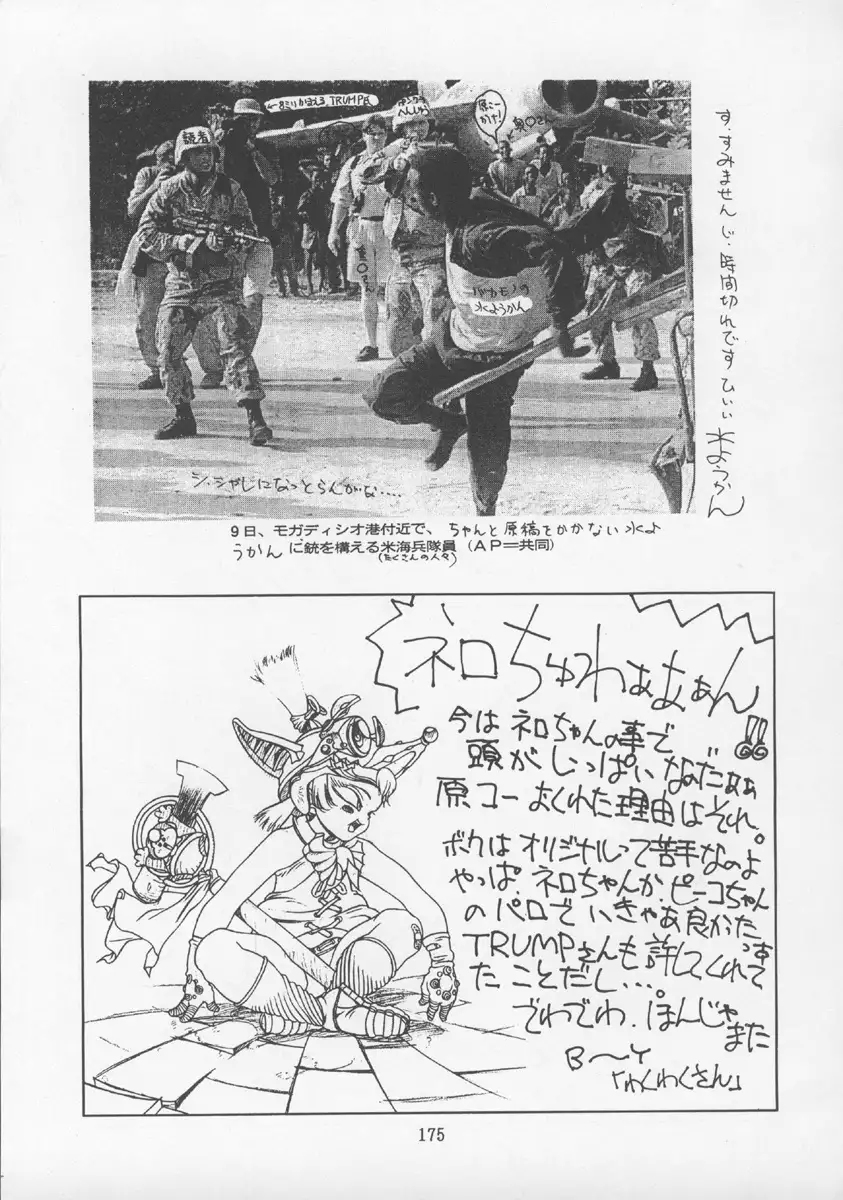 ←8ミリかまえる、TRUMP氏
読者
へんしゅう
原こー
かけ!
臭〇さん
バカモノの
水ようかん
シ、シャレになっとらんがな‥‥
す、すみません じ、時間切れです ひぃぃ 水ようかん
9日、モガディシオ港付近で、ちゃんと原稿をかかない水よ
うかんに銃を構える米海兵隊員(AP=共同)
(たくさんの人々)
ネロちゅわぁあぁん!!
今はネロちゃんの事で
頭がいっぱいなのだぁぁ
原コーよくれた理由はそれ。
ボクはオリジナルって苦手なのよ
やっぱ、ネロちゃんか、ピーコちゃん
のパロでいきゃあ良かたっす
TRUMPさんも許してくれて
たことだし…。
でわでわ、ぽんじゃ
また
B〜Y
「わくわくさん」
175